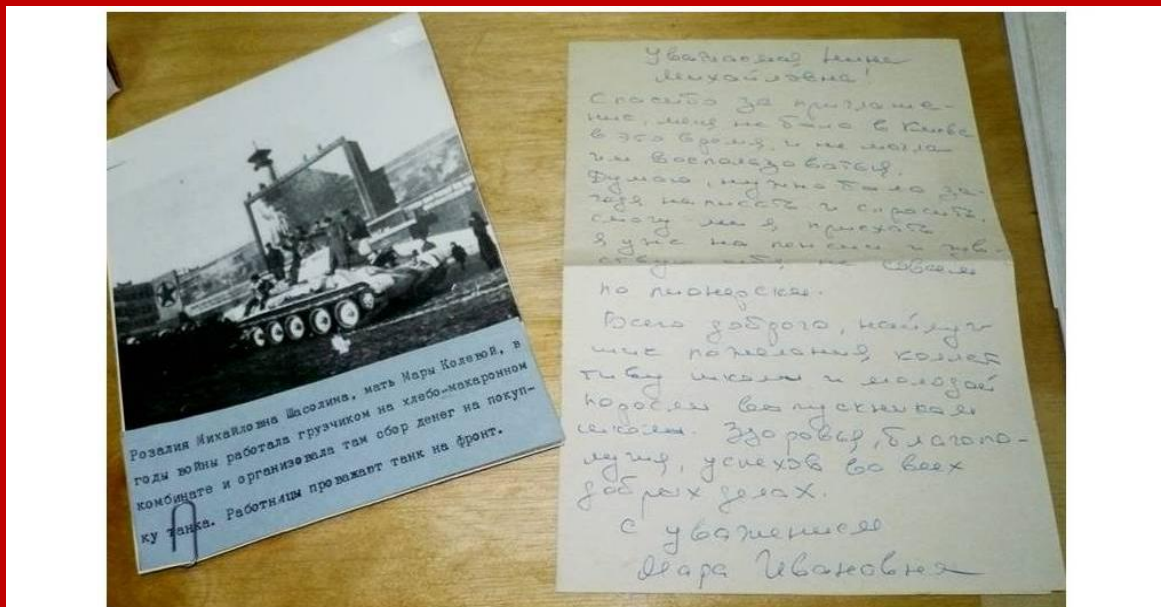 Розалия Михайловна Шасолина, мать Мары Колевой, в
годы войны работала грузчиком на хлебо-макаронном
комбинате и организовала там сбор денег на покуп-
ку танка. Работницы провожают танк на фронт.
Уважаемая Нина
Михайловна!
Спасибо за приглаше-
ние, меня не было в Киеве
в это время, и не могла
им воспользоваться.
Думаю, нужно было за-
годя написать и спросить,
смогу ли я приехать
Я уже на пенсии и чув-
ствую себя не совсем
по пионерски.
Всего доброго, найлуч
шие пожелания коллек
тиву школы и молодой
поросли выпускникам
школы. Здоровья, благопо-
лучия, успехов во всех
добрых делах.
С уважением
Мара Ивановна